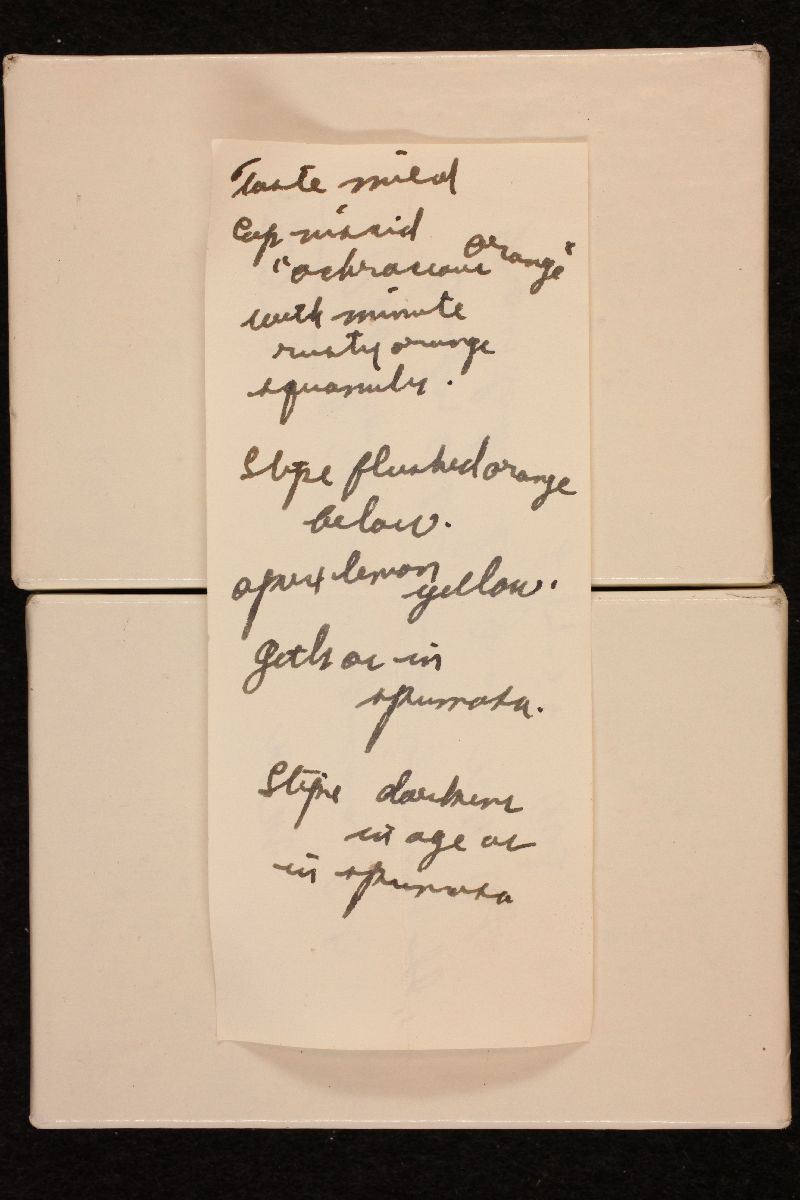 Taste mild
Cap viscid
"ochraceous orange"
with minute
rusty orange
squamules.
Stipe flushed orange
below.
apex lemon yellow.
as in
spumosa.
Stipe darkens
in age as
in spumosa